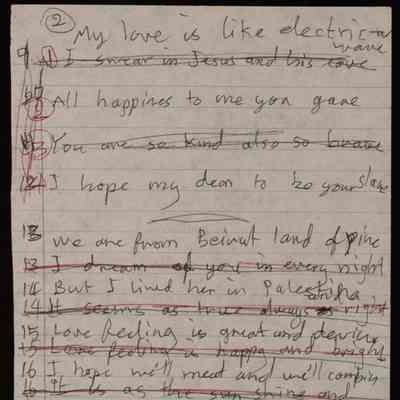 2
My love is like electric-al
wave
9 1 I swear in Jesus and his love
All happines to me you gave
You are so kind also so brave
12 I hope my dear to be your slave
13 we are from Beirut land of pine
13 I dream of you in every night
14 But I lived her in Palestine
14 It seems as true always right
15 Love feeling is great and
15 Love feeling is happy and bright
16 I hope we'll meat and we'll
16 It is as the sun shine and